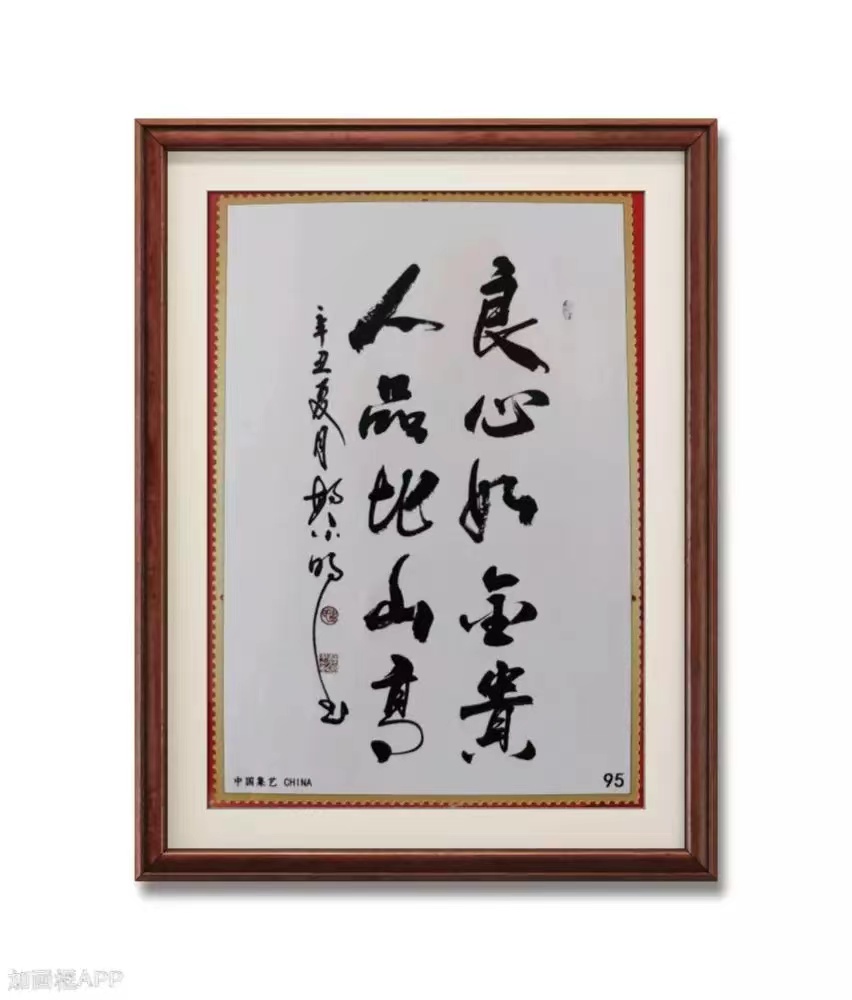 良心如金貴
人品比山高
辛丑夏月
小明
书
中国集艺 CHINA
95
如画框APP